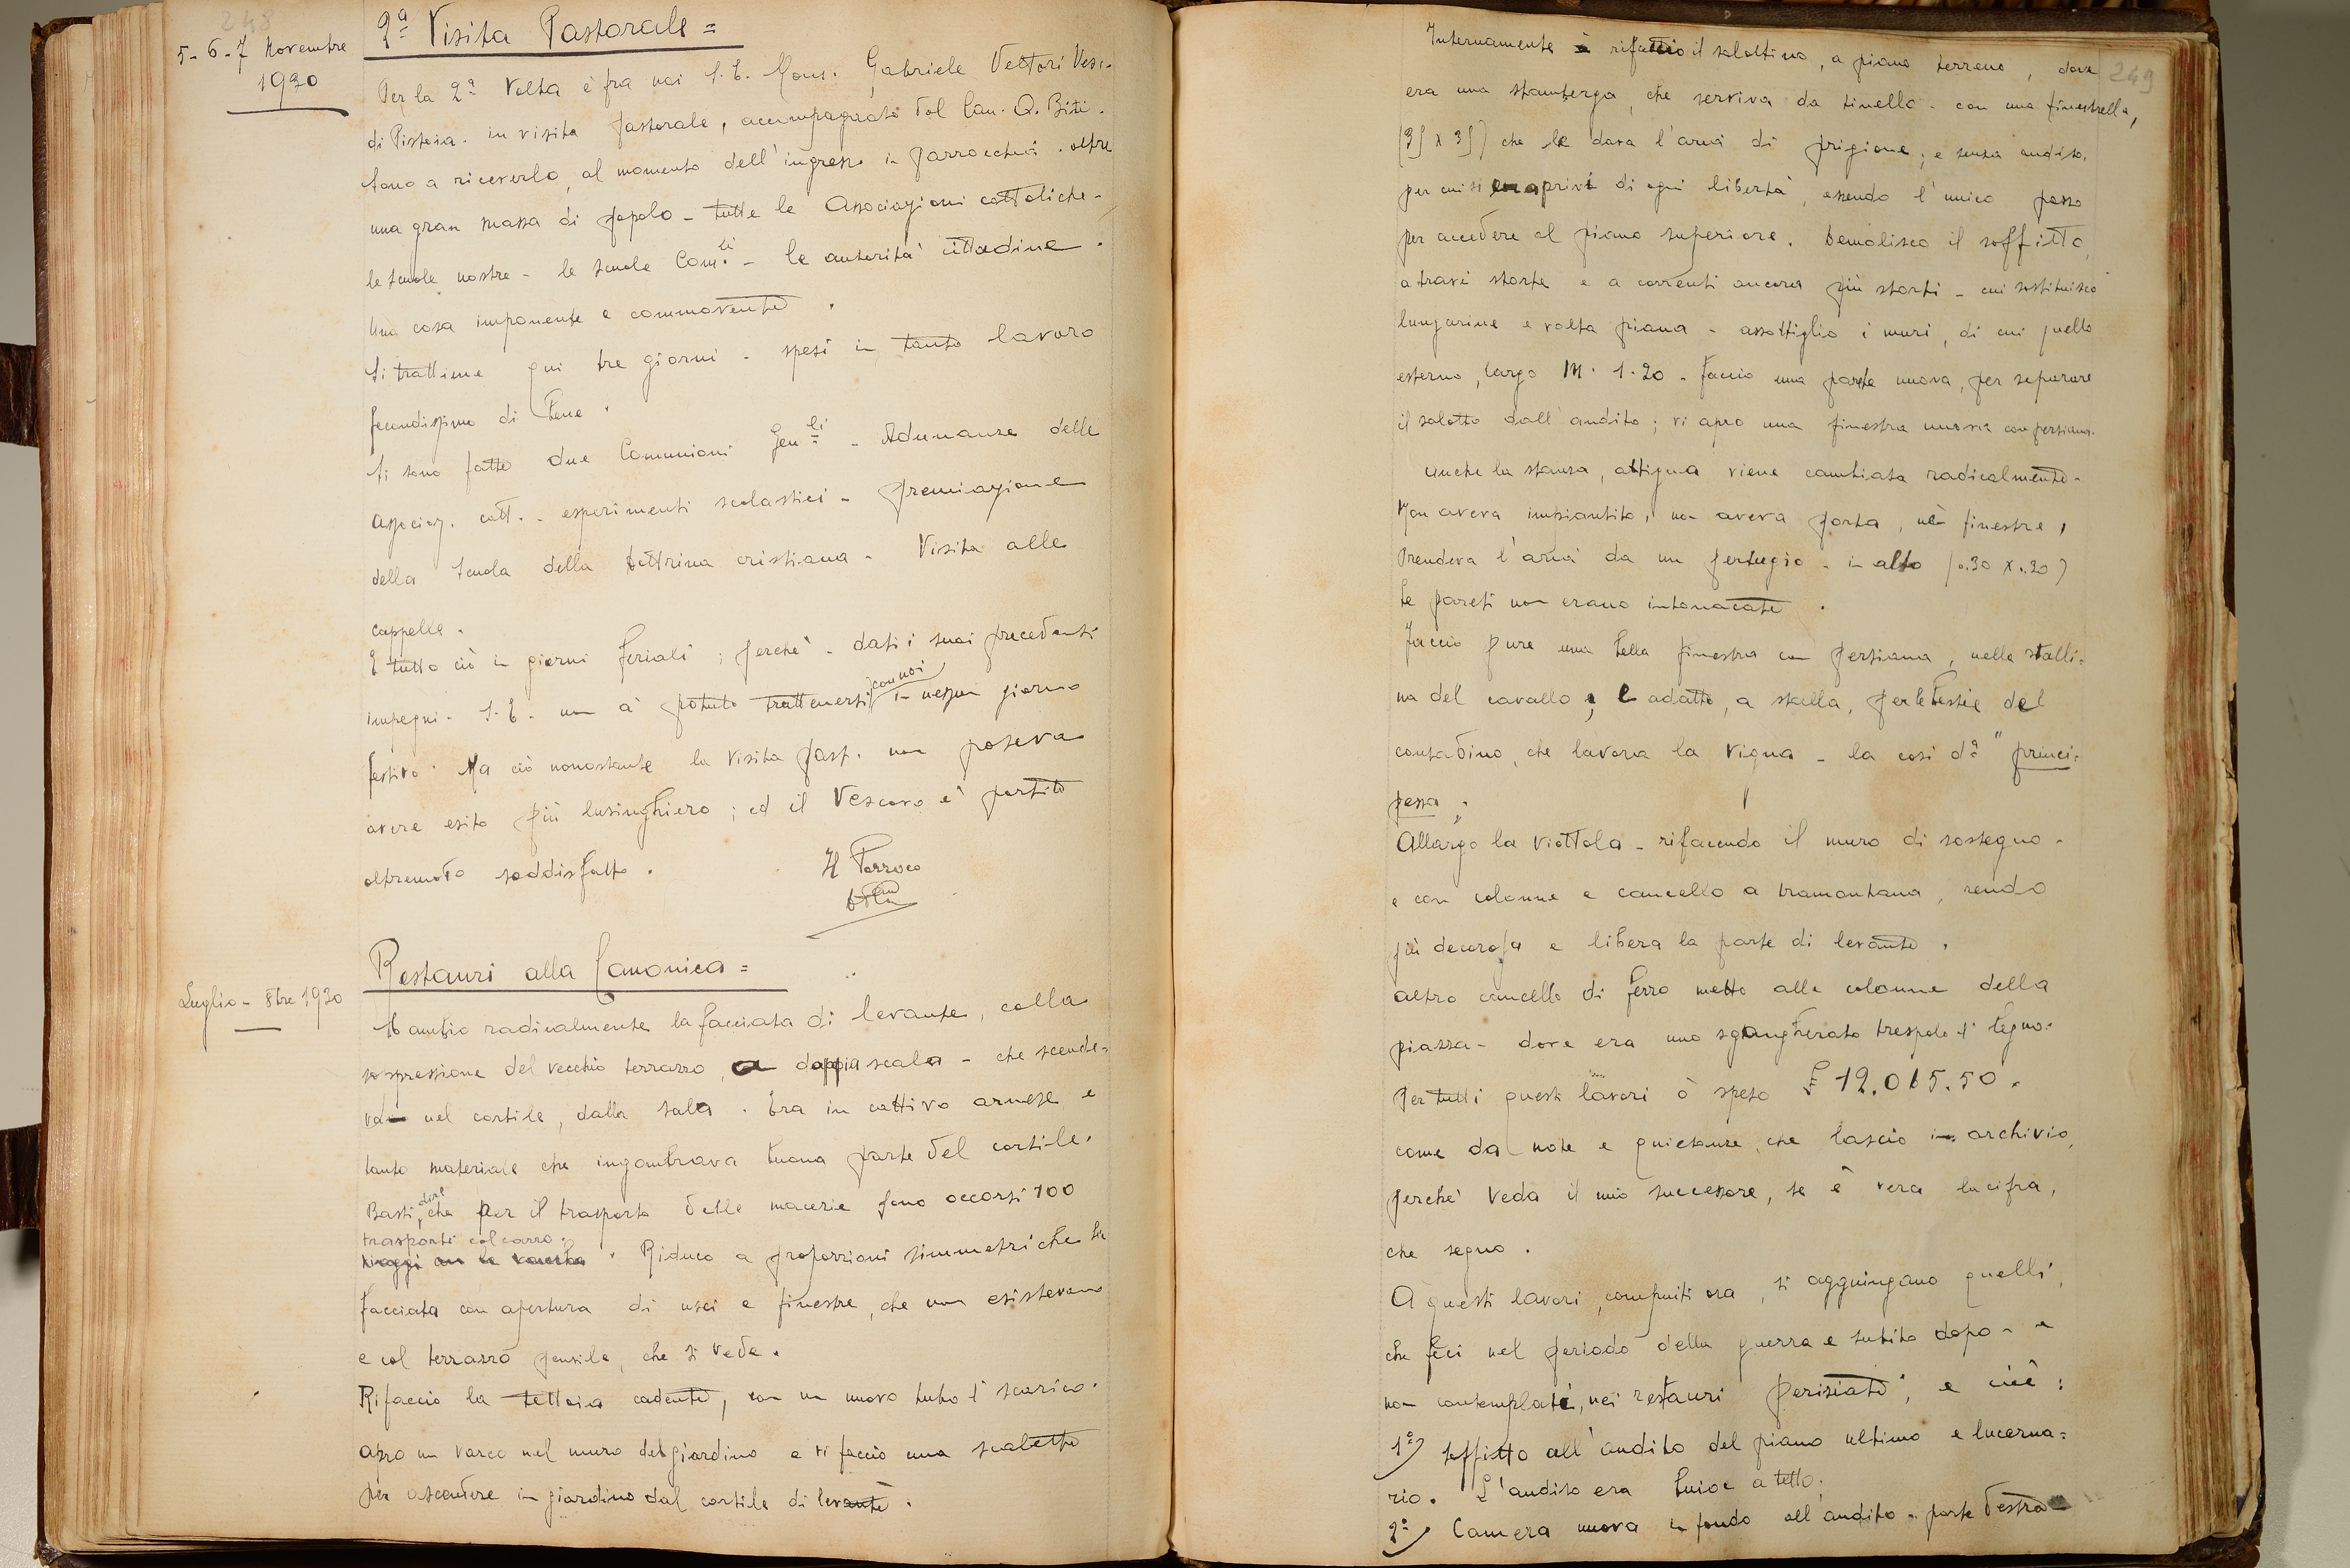 248
5-6-7 Novembre
1920
2ª Visita Pastorale =
Per la 2ª volta è fra noi S. E. Mons. Gabriele Vettori Vesc.
di Pistoia. in visita pastorale, accompagnato dal Can. Q. Biti.
Sono a riceverlo, al momento dell'ingresso in parrocchia. oltre
una gran massa di popolo - tutte le Associazioni cattoliche -
le scuole nostre - le scuole Com.li - le autorità cittadine.
Una cosa imponente e commovente.
Si trattiene qui tre giorni - spesi in tanto lavoro
fecondissimo di bene.
Si sono fatte due Comunioni Gen.li - Adunanze delle
Associaz. catt. - esperimenti scolastici - premiazione
della Scuola della Dottrina cristiana - Visita alle
cappelle.
E tutto ciò in giorni feriali; perchè - dati i suoi precedenti
impegni - S. E. non à potuto trattenersi con noi in nessun giorno
festivo. Ma ciò nonostante la visita past. non poteva
avere esito più lusinghiero; ed il Vescovo è partito
oltremodo soddisfatto.
Il Parroco
Luglio - 8bre 1920
Restauri alla Canonica =
Cambio radicalmente la facciata di levante, colla
soppressione del vecchio terrazzo, a doppia scala - che scende-
va nel cortile, dalla sala. Era in cattivo arnese e
tanto materiale che ingombrava buona parte del cortile.
Basti dire, che per il trasporto delle macerie sono occorsi 100
trasporti col carro.
Riduco a proporzioni simmetriche la
facciata con apertura di usci e finestre, che non esistevano
e col terrazzo pensile, che si vede.
Rifaccio la tettoia cadente, con un nuovo tubo d'scarico.
Apro un varco nel muro del giardino e vi faccio una scaletta
per ascendere in giardino dal cortile di levante.
249
Internamente è rifatto il salottino, a piano terreno, dove
era una stamberga, che serviva da tinello - con una finestrella,
(35 x 35) che le dava l'aria di prigione; e senza andito,
per cui si era privi di ogni libertà, essendo l'unico passo
per accedere al piano superiore. Demolisco il soffitto,
a travi storte e a correnti ancora più storti - cui sostituisco
lungarine e volta piana - assottiglio i muri, di cui quello
esterno, largo M. 1.20 - faccio una parete nuova, per separare
il salotto dall'andito; vi apro una finestra nuova con persiana.
Anche la stanza, attigua viene cambiata radicalmente.
Non aveva impiantito, non aveva porta, nè finestre,
Prendeva l'aria da un pertugio - in alto (0.30 x 0.20)
Le pareti non erano intonacate.
Faccio pure una bella finestra con persiana, nella stalli-
na del cavallo, e adatto, a stalla, per le bestie del
contadino, che lavora la vigna - la così dª "princi-
pessa;
Allargo la viottola - rifacendo il muro di sostegno -
e con colonne e cancello a tramontana, rendo
più decorosa e libera la parte di levante.
altro cancello di ferro metto alle colonne della
piazza - dove era uno sgangherato trespolo d'legno.
Per tutti questi lavori ò speso £ 12.015.50.
come da note e quietanze, che lascio in archivio,
perchè veda il mio successore, se è vera la cifra,
che segno.
A questi lavori, compiuti ora, si aggiungano quelli,
che feci nel periodo della guerra e subito dopo - e
non contemplati, nei restauri periziati, e cioè:
1º) Soffitto all'andito del piano ultimo e lucerna=
rio. L'andito era buio e a tetto;
2º) Camera nuova in fondo all'andito - parte destra -